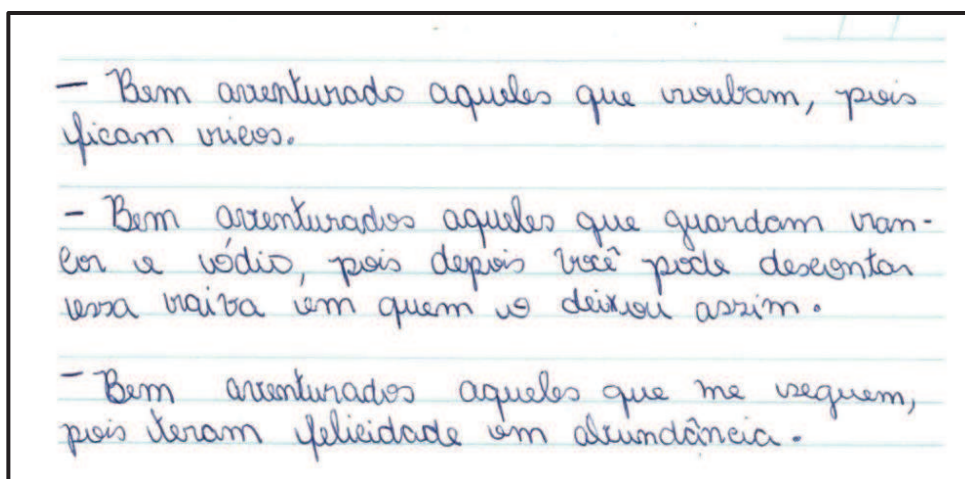 – Bem aventurado aqueles que roubam, pois
ficam ricos.
– Bem aventurados aqueles que guardam ran-
cor e ódio, pois depois você pode descontar
essa raiva em quem o deixou assim.
– Bem aventurados aqueles que me seguem,
pois teram felicidade em abundância.